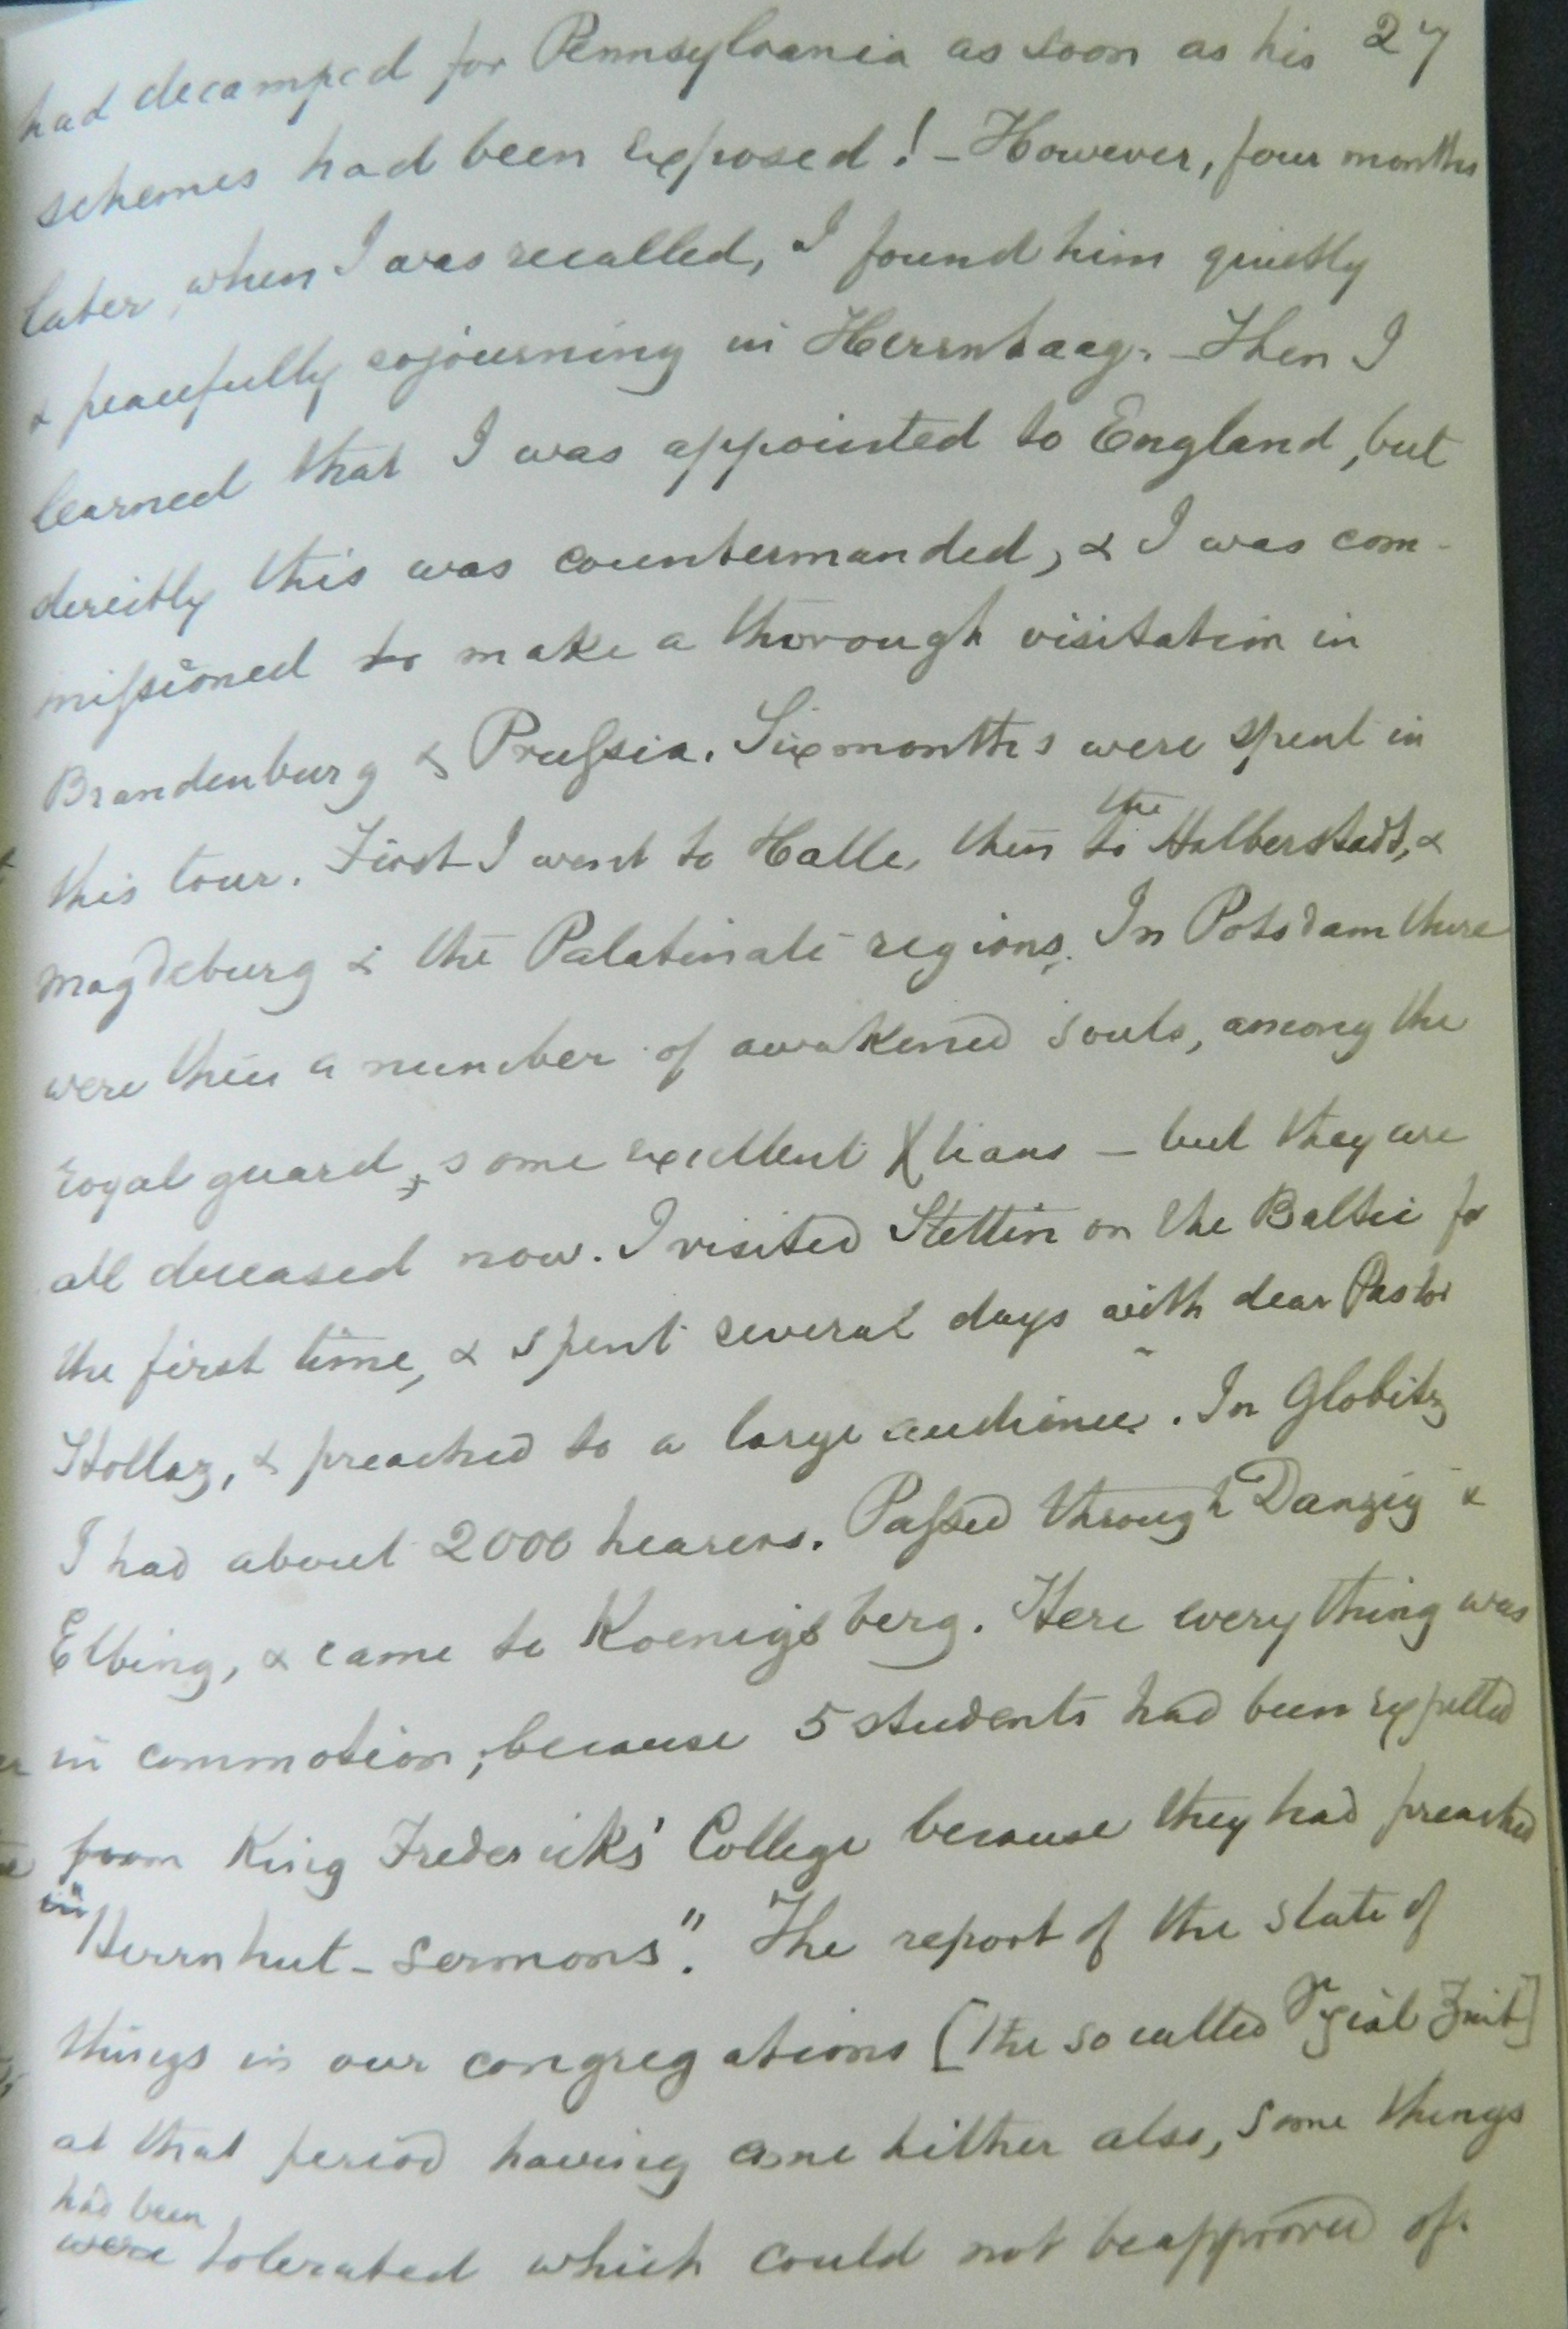 27
had decamped for Pennsylvania as soon as his
schemes had been exposed! - However, four months
later, when I was recalled, I found him quietly
& peacefully sojourning in Herrnhaag. - Then I
learned that I was appointed to England, but
directly this was countermanded, & I was com-
missioned to make a thorough visitation in
Brandenburg & Prussia. Six months were spent in
the
this tour. First I went to Halle, then to Halberstadt, &
Magdeburg & the Palatinate regions. In Potsdam there
were then a number of awakened souls, among the
royal guard, some excellent Xtians - but they are
all deceased now. I visited Stettin on the Baltic for
the first time, & spent several days with dear Pastor
Hollaz, & preached to a large audience. In Globitz
I had about 2000 hearers. Passed through Danzig &
Elbing, & came to Koenigsberg. Here everything was
in commotion, because 5 students had been expelled
from King Frederick's College because they had preached
in
"Herrnhut-sermons". The report of the state of
things in our congregations [the so called Zeit]
at that period having come hither also, some things
had been
were tolerated which could not be approved of.